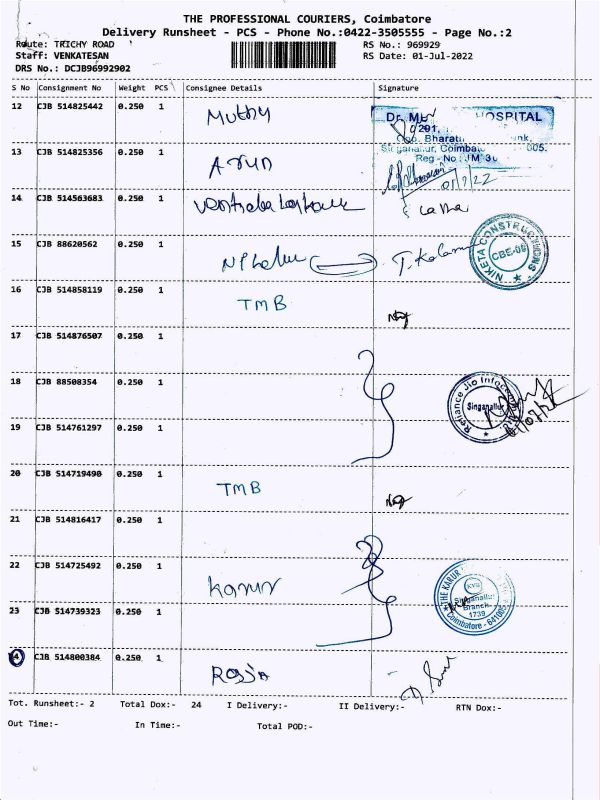 THE PROFESSIONAL COURIERS, Coimbatore
Delivery Runsheet - PCS - Phone No.:0422-3505555 - Page No.:2
Route: TRICHY ROAD RS No.: 969929
Staff: VENKATESAN RS Date: 01-Jul-2022
DRS No.: DCJB96992902
S No Consignment No Weight PCS Consignee Details Signature
12 CJB 514825442 0.250 1 Muthy
HOSPITAL
Reg - No
01/7/22
13 CJB 514825356 0.250 1 Arun
14 CJB 514563683 0.250 1
15 CJB 88620562 0.250 1
NIKETA CONSTRUCTIONS
CBE-05
16 CJB 514858119 0.250 1 TMB
17 CJB 514876507 0.250 1
18 CJB 88508354 0.250 1
Reliance Jio Infocomm
Singanallur
19 CJB 514761297 0.250 1
20 CJB 514719490 0.250 1 TMB
21 CJB 514816417 0.250 1
22 CJB 514725492 0.250 1 Karur
THE KARUR
KVB
Singanallur
Branch
1739
Coimbatore
23 CJB 514739323 0.250 1
24 CJB 514800384 0.250 1
Tot. Runsheet:- 2 Total Dox:- 24 I Delivery:- II Delivery:- RTN Dox:-
Out Time:- In Time:- Total POD:-